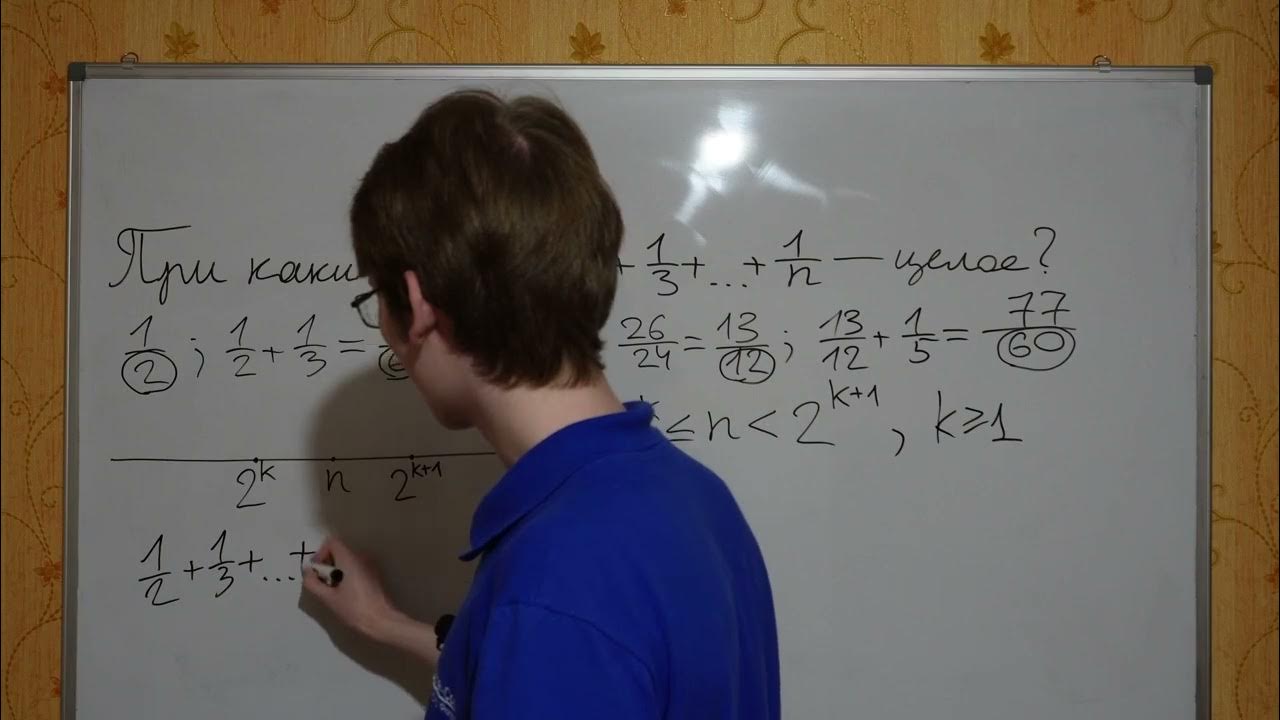 При + 1/3 + ... + 1/n — целое?
1/2 ; 1/2 + 1/3 = 26/24 = 13/12 ; 13/12 + 1/5 = 77/60
≤ n < 2^(k+1) , k ≥ 1
2^k n 2^(k+1)
1/2 + 1/3 + ... +